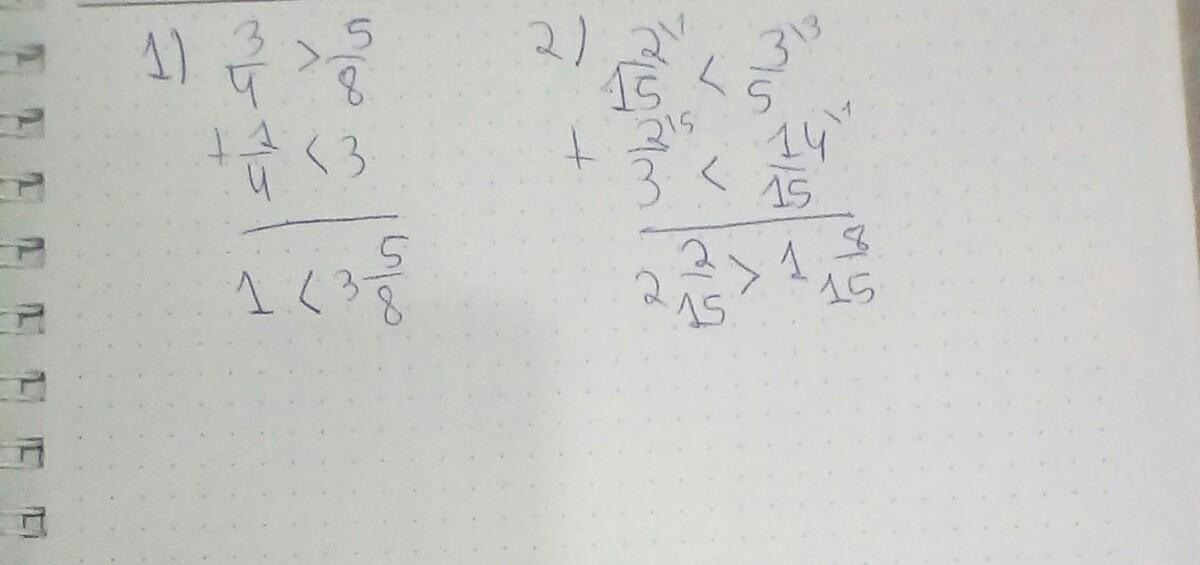 1) 3/4 > 5/8
+ 1/4 < 3
1 < 3 5/8
2) 2\1/15 < 3\3/5
+ 2\5/3 < 14\1/15
2 2/15 > 1 8/15